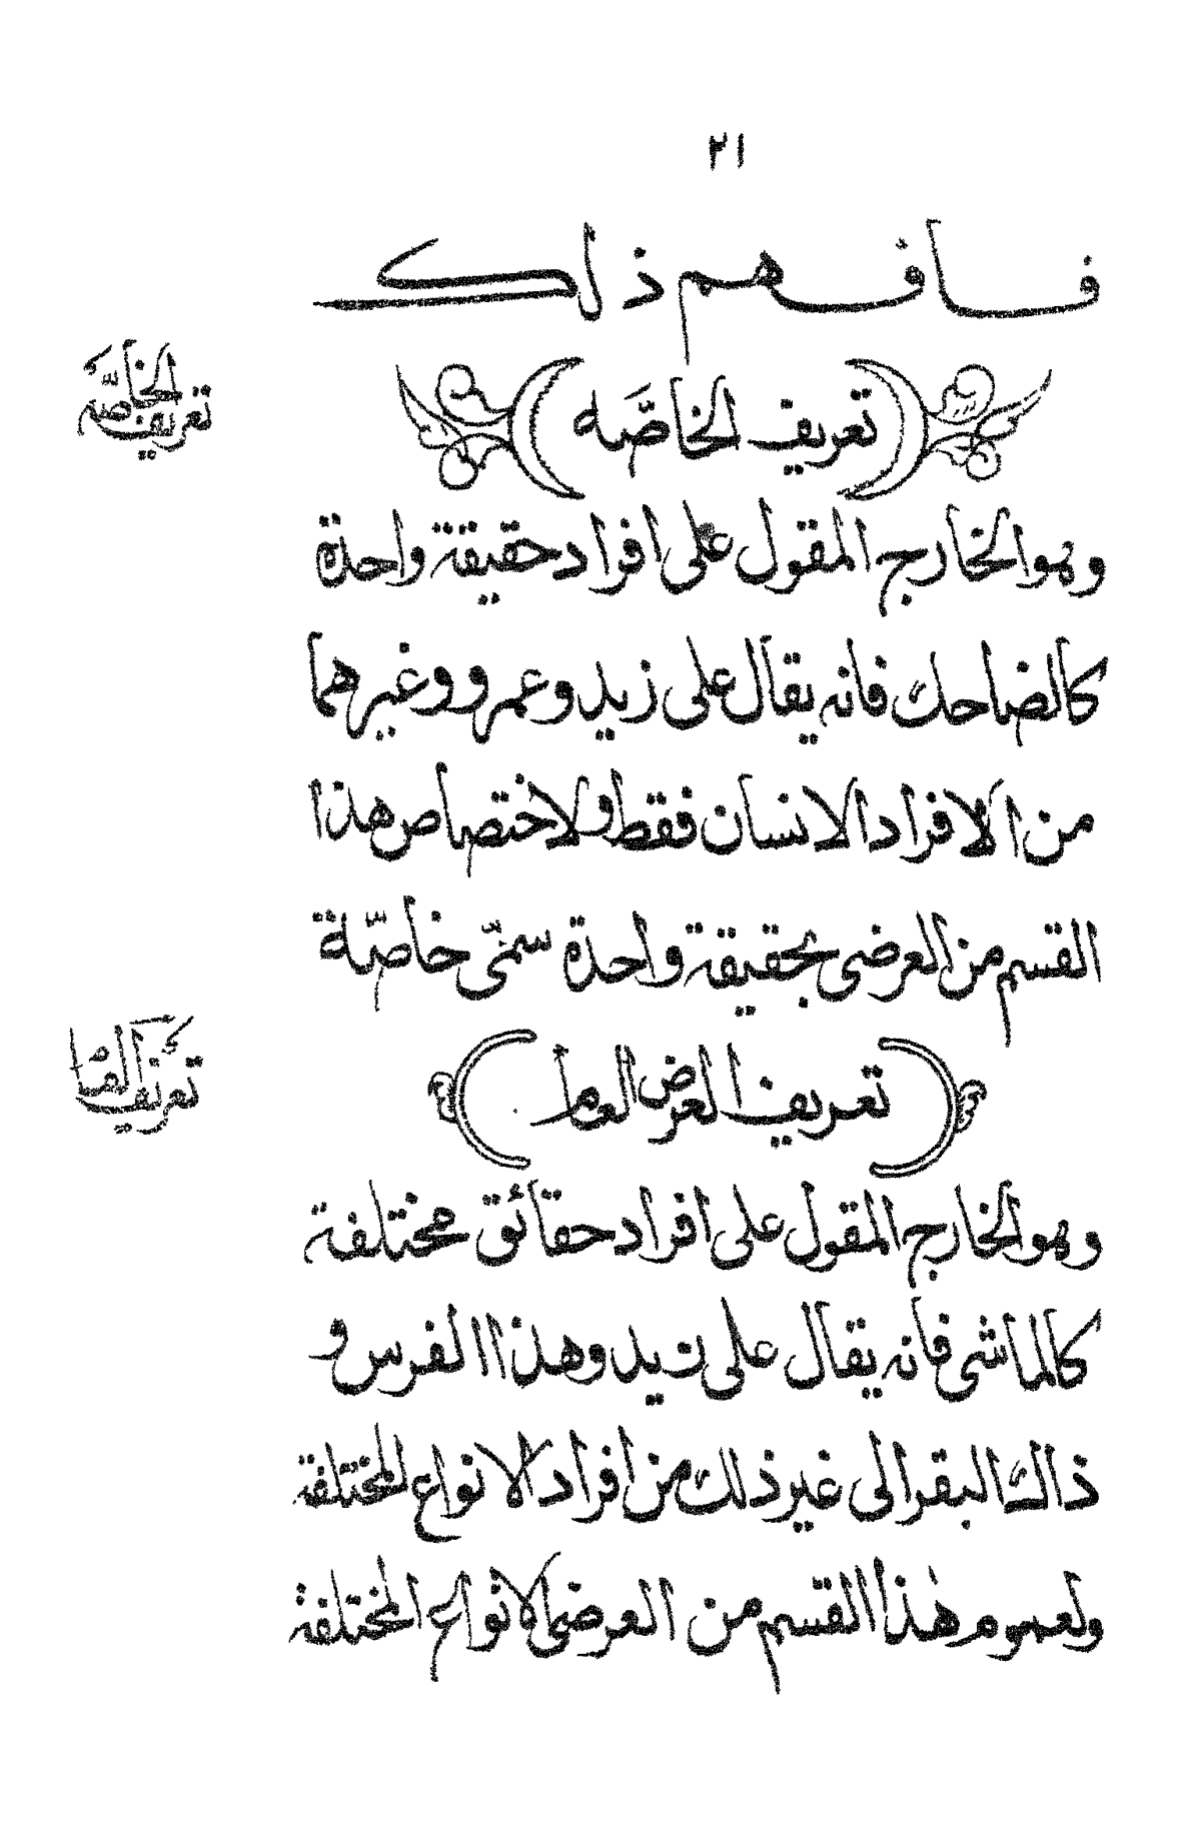 ٢١
فافهم ذلك
تعريف الخاصّه
تعريف الخاصّه
وهو الخارج المقول على افراد حقيقة واحدة
كالضاحك فانه يقال على زيد وعمرو وغيرهما
من الافراد الانسان فقط ولاختصاص هذا
القسم من العرضى بحقيقة واحدة سمّى خاصّة
تعريف العرض العام
تعريف العام
وهو الخارج المقول على افراد حقائق مختلفة
كالماشى فانه يقال على زيد وهذا الفرس و
ذاك البقر الى غير ذلك من افراد الانواع المختلفة
ولعموم هذا القسم من العرضى الانواع المختلفة